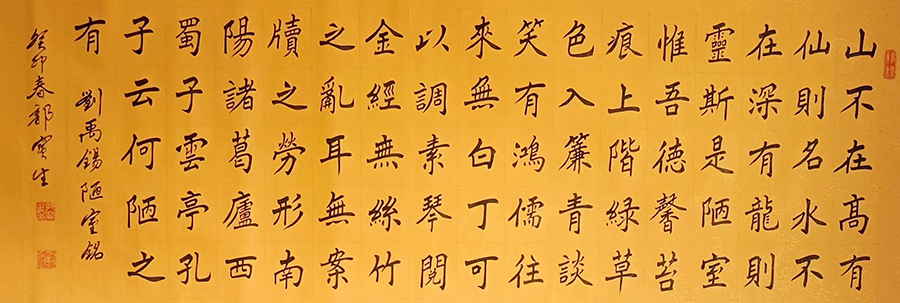 山不在髙有
仙則名水不
在深有龍則
靈斯是陋室
惟吾德馨苔
痕上階緑草
色入簾青談
笑有鴻儒往
來無白丁可
以調素琴閱
金經無絲竹
之亂耳無案
牘之勞形南
陽諸葛廬西
蜀子雲亭孔
子云何陋之
有 劉禹錫陋室銘
癸卯春